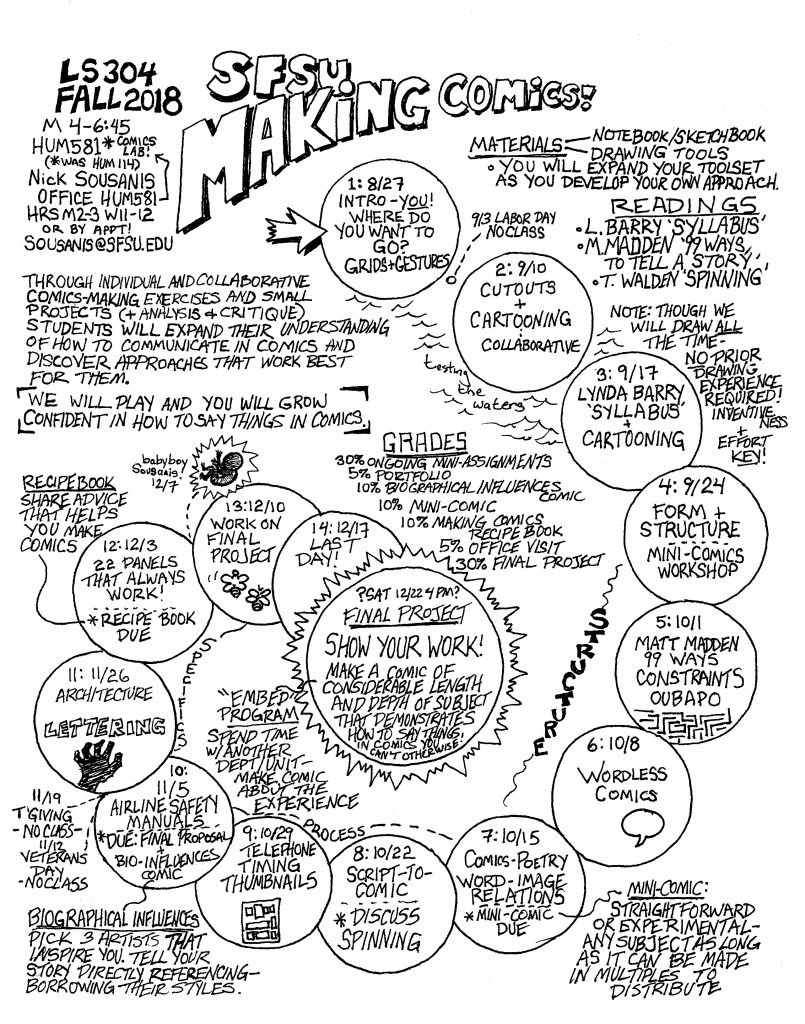 LS304
FALL 2018
SFSU
MAKING COMICS!
M 4-6:45
HUM581* COMICS LAB!
(*WAS HUM 114)
NICK SOUSANIS
OFFICE HUM581
HRS M2-3 W11-12
OR BY APPT!
SOUSANIS@SFSU.EDU
MATERIALS
NOTEBOOK/SKETCHBOOK
DRAWING TOOLS
• YOU WILL EXPAND YOUR TOOLSET
AS YOU DEVELOP YOUR OWN APPROACH.
READINGS
• L. BARRY 'SYLLABUS'
• M. MADDEN '99 WAYS,
TO TELL A STORY',
• T. WALDEN 'SPINNING'
NOTE: THOUGH WE
WILL DRAW ALL
THE TIME-
NO PRIOR
DRAWING
EXPERIENCE
REQUIRED!
INVENTIVE
NESS
+
EFFORT
KEY!
THROUGH INDIVIDUAL AND COLLABORATIVE
COMICS-MAKING EXERCISES AND SMALL
PROJECTS (+ ANALYSIS & CRITIQUE)
STUDENTS WILL EXPAND THEIR UNDERSTANDING
OF HOW TO COMMUNICATE IN COMICS AND
DISCOVER APPROACHES THAT WORK BEST
FOR THEM.
WE WILL PLAY AND YOU WILL GROW
CONFIDENT IN HOW TO SAY THINGS IN COMICS.
1: 8/27
INTRO-YOU!
WHERE DO
YOU WANT TO
GO?
GRIDS+GESTURES
9/3 LABOR DAY
NO CLASS
2: 9/10
CUTOUTS
+
CARTOONING
+
COLLABORATIVE
testing
the
waters
3: 9/17
LYNDA BARRY
'SYLLABUS'
+
CARTOONING
4: 9/24
FORM +
STRUCTURE
MINI-COMICS
WORKSHOP
STRUCTURE
5: 10/1
MATT MADDEN
99 WAYS
CONSTRAINTS
OUBAPO
6: 10/8
WORDLESS
COMICS
7: 10/15
COMICS-POETRY
WORD-IMAGE
RELATIONS
* MINI-COMIC
DUE
MINI-COMIC:
STRAIGHTFORWARD
OR EXPERIMENTAL-
ANY SUBJECT AS LONG
AS IT CAN BE MADE
IN MULTIPLES TO
DISTRIBUTE
PROCESS
8: 10/22
SCRIPT-TO-
COMIC
* DISCUSS
SPINNING
9: 10/29
TELEPHONE
TIMING
THUMBNAILS
10:
11/5
AIRLINE SAFETY
MANUALS
*DUE: FINAL PROPOSAL
+
BIO-INFLUENCES
COMIC
11/19
T'GIVING
-NO CLASS-
11/12
VETERANS
DAY
-NO CLASS
BIOGRAPHICAL INFLUENCES
PICK 3 ARTISTS THAT
INSPIRE YOU. TELL YOUR
STORY DIRECTLY REFERENCING-
BORROWING THEIR STYLES.
11: 11/26
ARCHITECTURE
LETTERING
SPECIFICS
12: 12/3
22 PANELS
THAT ALWAYS
WORK!
* RECIPE BOOK
DUE
RECIPEBOOK
SHARE ADVICE
THAT HELPS
YOU MAKE
COMICS
babyboy
Sousanis!
12/7
13: 12/10
WORK ON
FINAL
PROJECT
14: 12/17
LAST
DAY!
GRADES
30% ONGOING MINI-ASSIGNMENTS
5% PORTFOLIO
10% BIOGRAPHICAL INFLUENCES
COMIC
10% MINI-COMIC
10% MAKING COMICS
RECIPE BOOK
5% OFFICE VISIT
30% FINAL PROJECT
?SAT 12/22 4PM?
FINAL PROJECT
SHOW YOUR WORK!
MAKE A COMIC OF
CONSIDERABLE LENGTH
AND DEPTH OF SUBJECT
THAT DEMONSTRATES
HOW TO SAY THINGS
IN COMICS YOU
CAN'T OTHERWISE!
"EMBED"
PROGRAM
SPEND TIME
W/ ANOTHER
DEPT/UNIT-
MAKE COMIC
ABOUT THE
EXPERIENCE